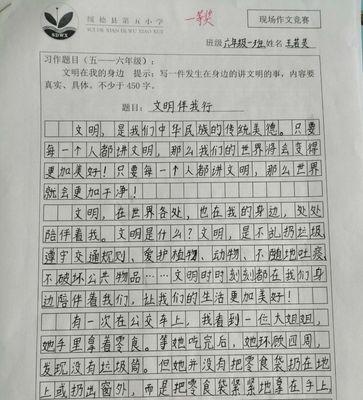 绥德县第五小学
一等奖
现场作文竞赛
SUI DE XIAN DI WU XIAO XUE
班级六年级一班姓名
习作题目(五——六年级):
文明在我的身边 提示:写一件发生在身边的讲文明的事,内容要
真实、具体。不少于450字。
题目:文明伴我行
文明,是我们中华民族的传统美德。只要
每一个人都讲文明,那么我们的世界将会变得
更加美好!只要每一个人都讲文明,那么世界
就会更加干净!
文明,在世界各处,也在我的身边,处处
陪伴着我。文明是什么?文明,是不乱扔垃圾、
遵守交通规则、爱护植物、动物、不随地吐痰、
不破坏公共物品……文明时时刻刻都在我们身
边陪伴着我们,让我们的生活更加美好!
有一次在公交车上,我看到一位大姐姐,
她手里拿着零食。等她吃完后,她环顾四周,
发现没有垃圾筒。但她并没有把零食袋扔在地
上或扔出窗外,而是把零食袋紧紧地拿在手上,